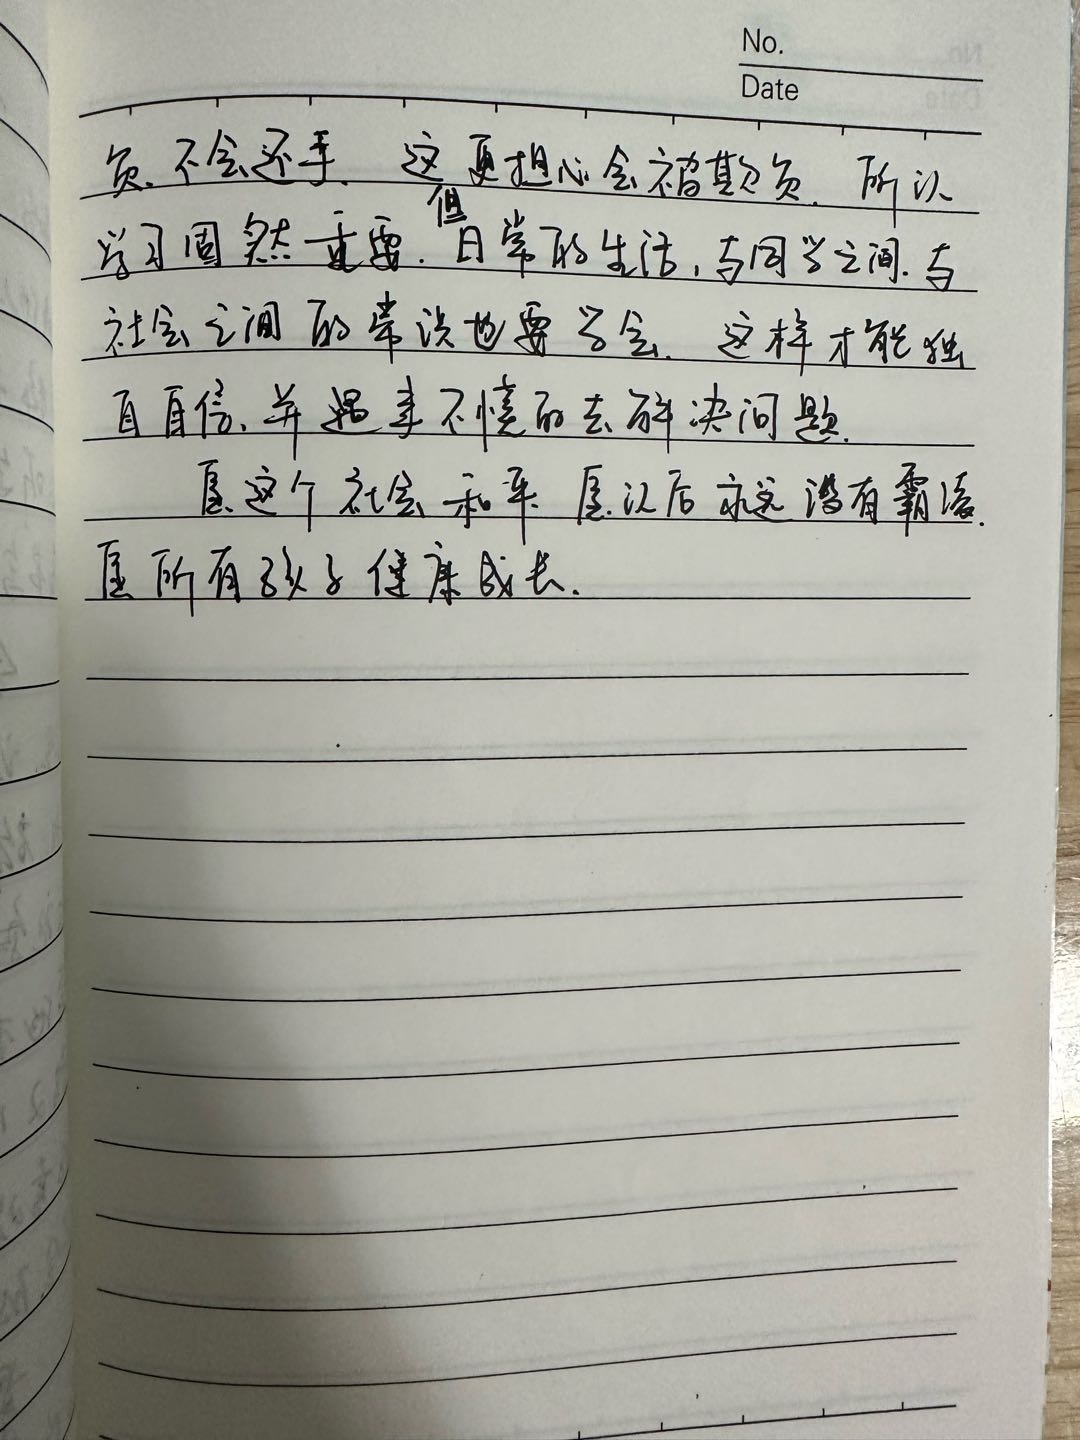 No.
Date
负、不会还手. 这更担心会被欺负. 所以
学习固然重要. 但日常的生活, 与同学之间. 与
社会之间的常识也要学会. 这样才能独
自自信、并遇事不慌的去解决问题.
愿这个社会和平 愿以后永远没有霸凌.
愿所有孩子健康成长.